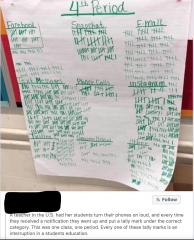 4th Period
Facebook
Snapchat
E-Mail
Phone Calls
Instagram
Follow
A teacher in the U.S. had her students turn their phones on loud, and every time
they received a notification they went up and put a tally mark under the correct
category. This was one class, one period. Every one of these tally marks is an
interruption in a students education.